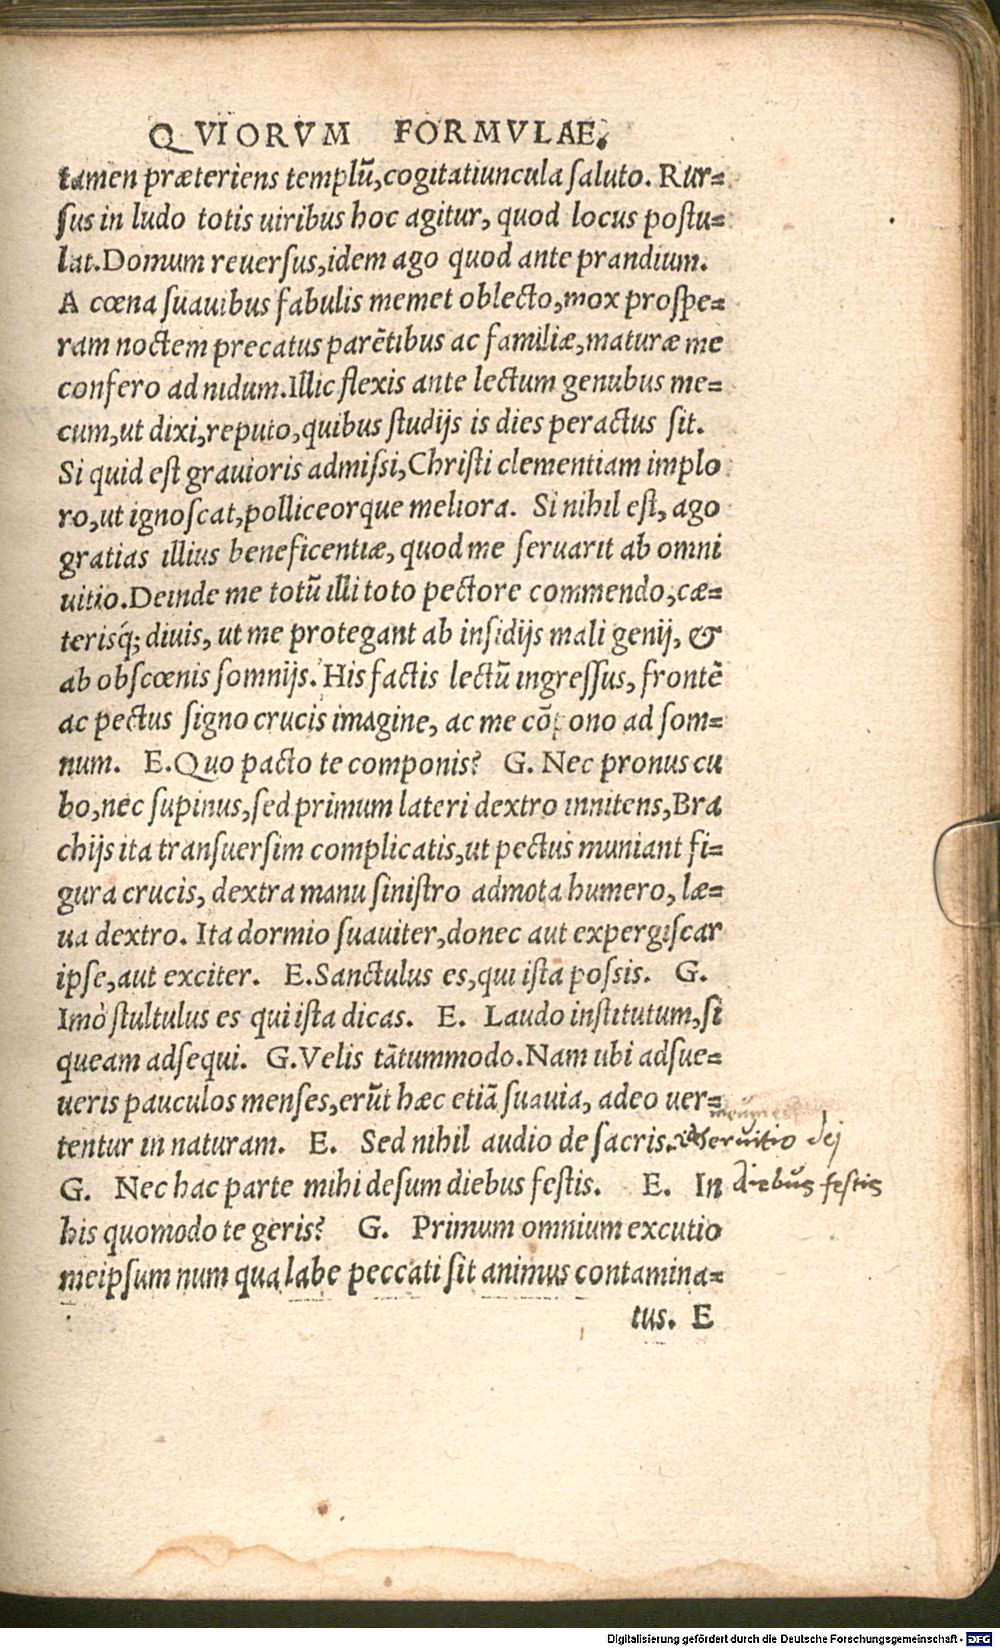 QVIORVM FORMVLAE.
tamen præteriens templũ,cogitatiuncula saluto. Rur=
sus in ludo totis uiribus hoc agitur, quod locus postu=
lat.Domum reuersus,idem ago quod ante prandium.
A cœna suauibus fabulis memet oblecto,mox prospe=
ram noctem precatus parẽtibus ac familiæ,maturæ me
confero ad nidum.Illic flexis ante lectum genubus me=
cum,ut dixi,reputo,quibus studijs is dies peractus sit.
Si quid est grauioris admissi,Christi clementiam implo
ro,ut ignoscat,polliceorque meliora. Si nihil est, ago
gratias illius beneficentiæ, quod me seruarit ab omni
uitio.Deinde me totũ illi toto pectore commendo,cæ=
terisq́; diuis, ut me protegant ab insidijs mali genij, &
ab obscœnis somnijs. His factis lectũ ingressus, frontẽ
ac pectus signo crucis imagine, ac me cõpono ad som=
num. E.Quo pacto te componis? G. Nec pronus cu
bo,nec supinus,sed primum lateri dextro innitens,Bra
chijs ita transuersim complicatis,ut pectus muniant fi=
gura crucis, dextra manu sinistro admota humero, læ=
ua dextro. Ita dormio suauiter,donec aut expergiscar
ipse,aut exciter. E.Sanctulus es,qui ista possis. G.
Imò stultulus es qui ista dicas. E. Laudo institutum,si
queam adsequi. G.Velis tãtummodo.Nam ubi adsue=
ueris pauculos menses,erũt hæc etiã suauia, adeo uer=
tentur in naturam. E. Sed nihil audio de sacris. seruitio dej
G. Nec hac parte mihi desum diebus festis. E. In diebus festis
his quomodo te geris? G. Primum omnium excutio
meipsum num qua labe peccati sit animus contamina=
tus. E
Digitalisierung gefördert durch die Deutsche Forschungsgemeinschaft - DFG